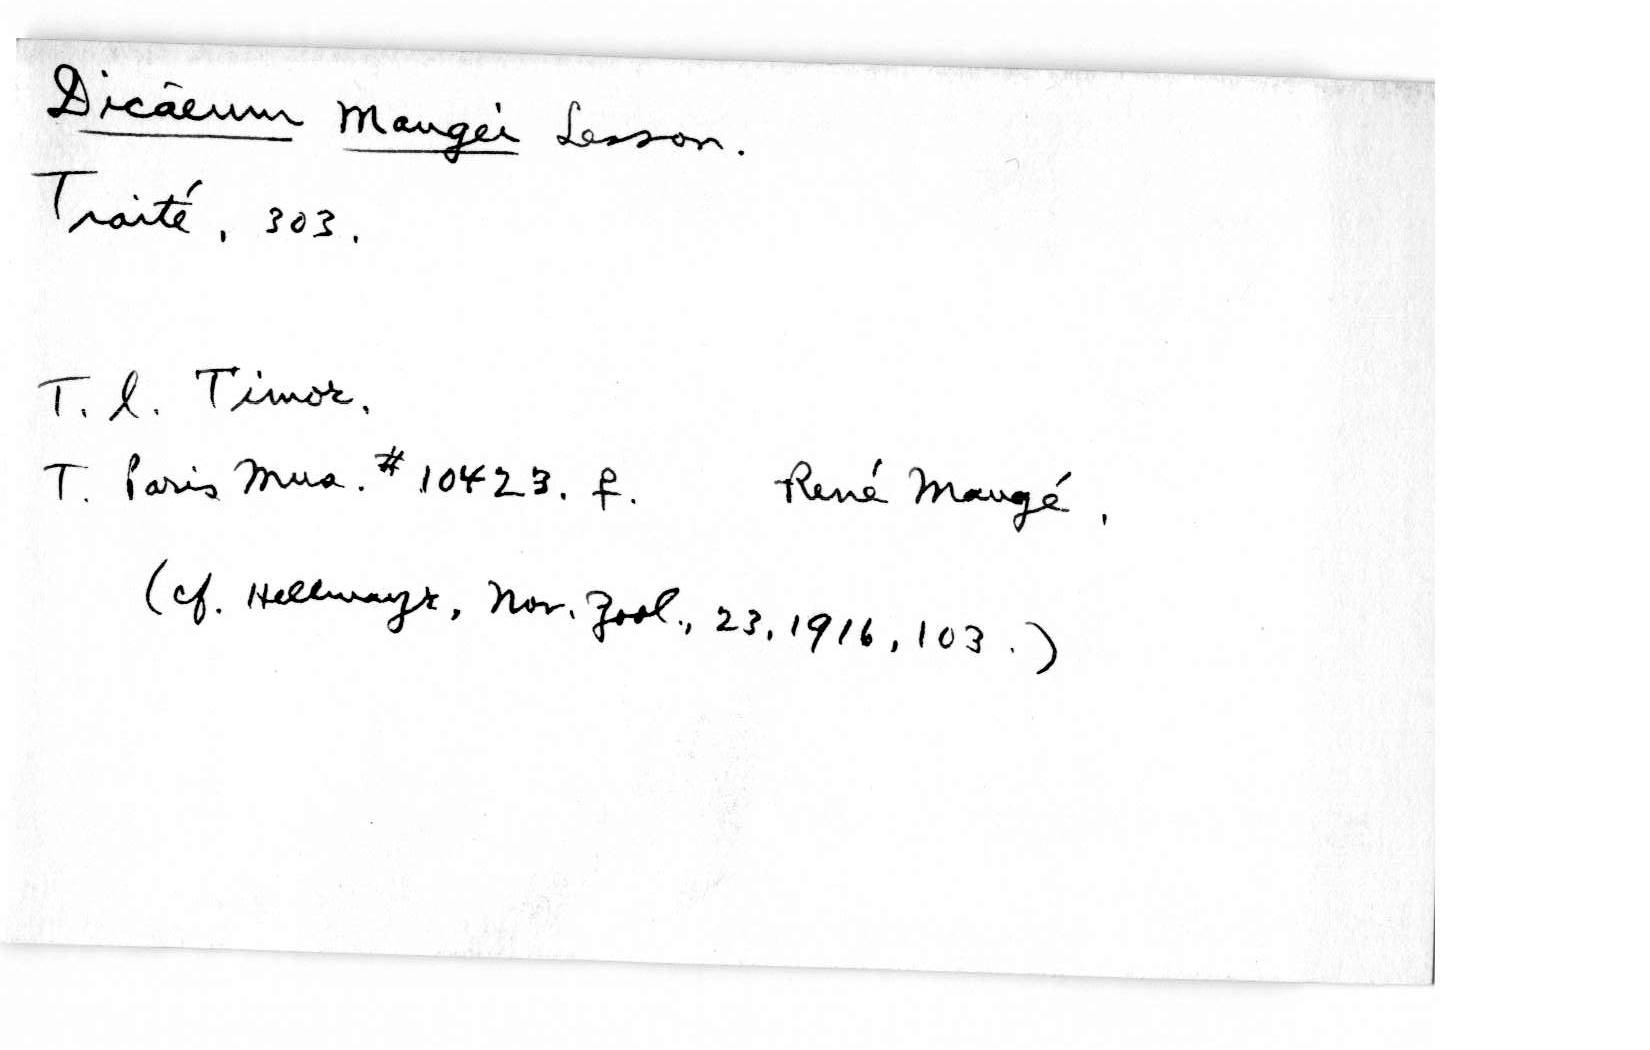 Dicāeum Maugéi Lesson.
Traité, 303.
T. l. Timor.
T. Paris Mus. #10423. ♀. René Maugé.
(cf. Hellmayr, Nov. Zool., 23, 1916, 103.)